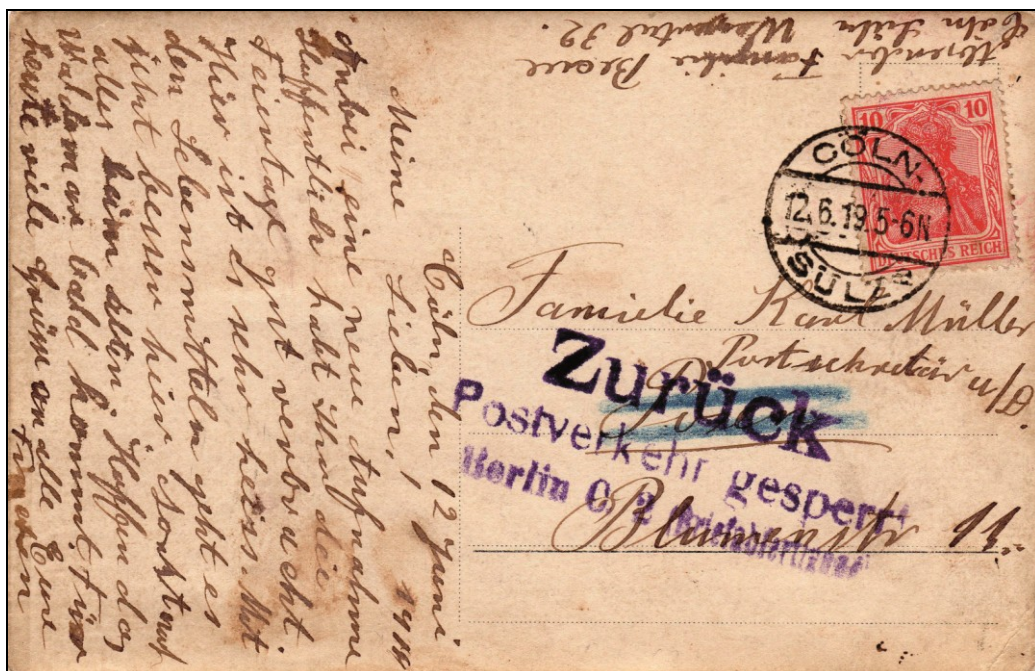 Absender Familie
Cöln Sülz
10 10
DEUTSCHES REICH
CÖLN-
12.6.19.5-6N
SÜLZ
Familie Karl Müller
Postsekretär a/D.
Zurück
Postverkehr gesperrt
Berlin C 2
Blumenstr 11
Cöln, den 12 Juni 1919
Meine Lieben,
Anbei eine neue Aufnahme
Hoffentlich habt Ihr die
Feiertage gut verbracht
Hier ist es sehr heiss. Mit
den Lebensmitteln geht es
jetzt besser hier sonst noch
alles beim alten, Hoffen das
Waldemar bald kommt. Für
heute viele Grüße an alle Eure